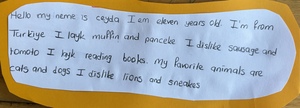 Hello my neme is ceyda I am eleven years old. I'm from
Türkiye I layk muffin and panceke I dislike sausage and
tomoto I layk reading books. my favorite animals are
cats and dogs I dislike lions and sneakes